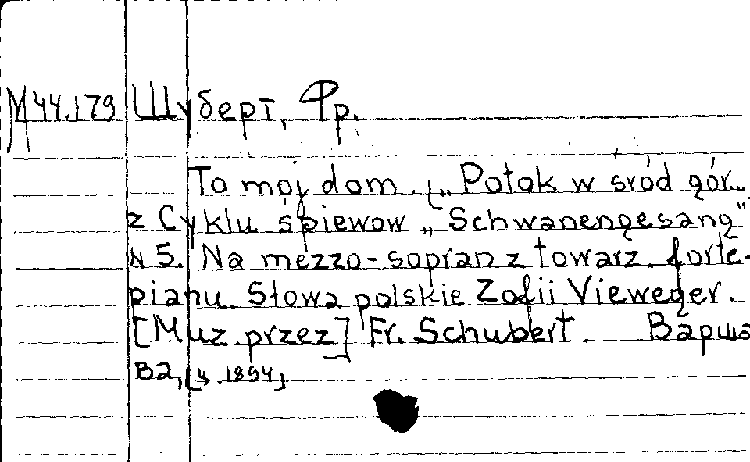 М44.179 Шуберт, Фр.
To mój dom. („Potok w sród gór..
z Cyklu śpiewow „Schwanengesang"
N 5. Na mezzo-sopran z towarz. forte-
pianu. Słowa polskie Zofii Vieweger.
[Muz. przez] Fr. Schubert. Варша
ва, [ц. 1894]